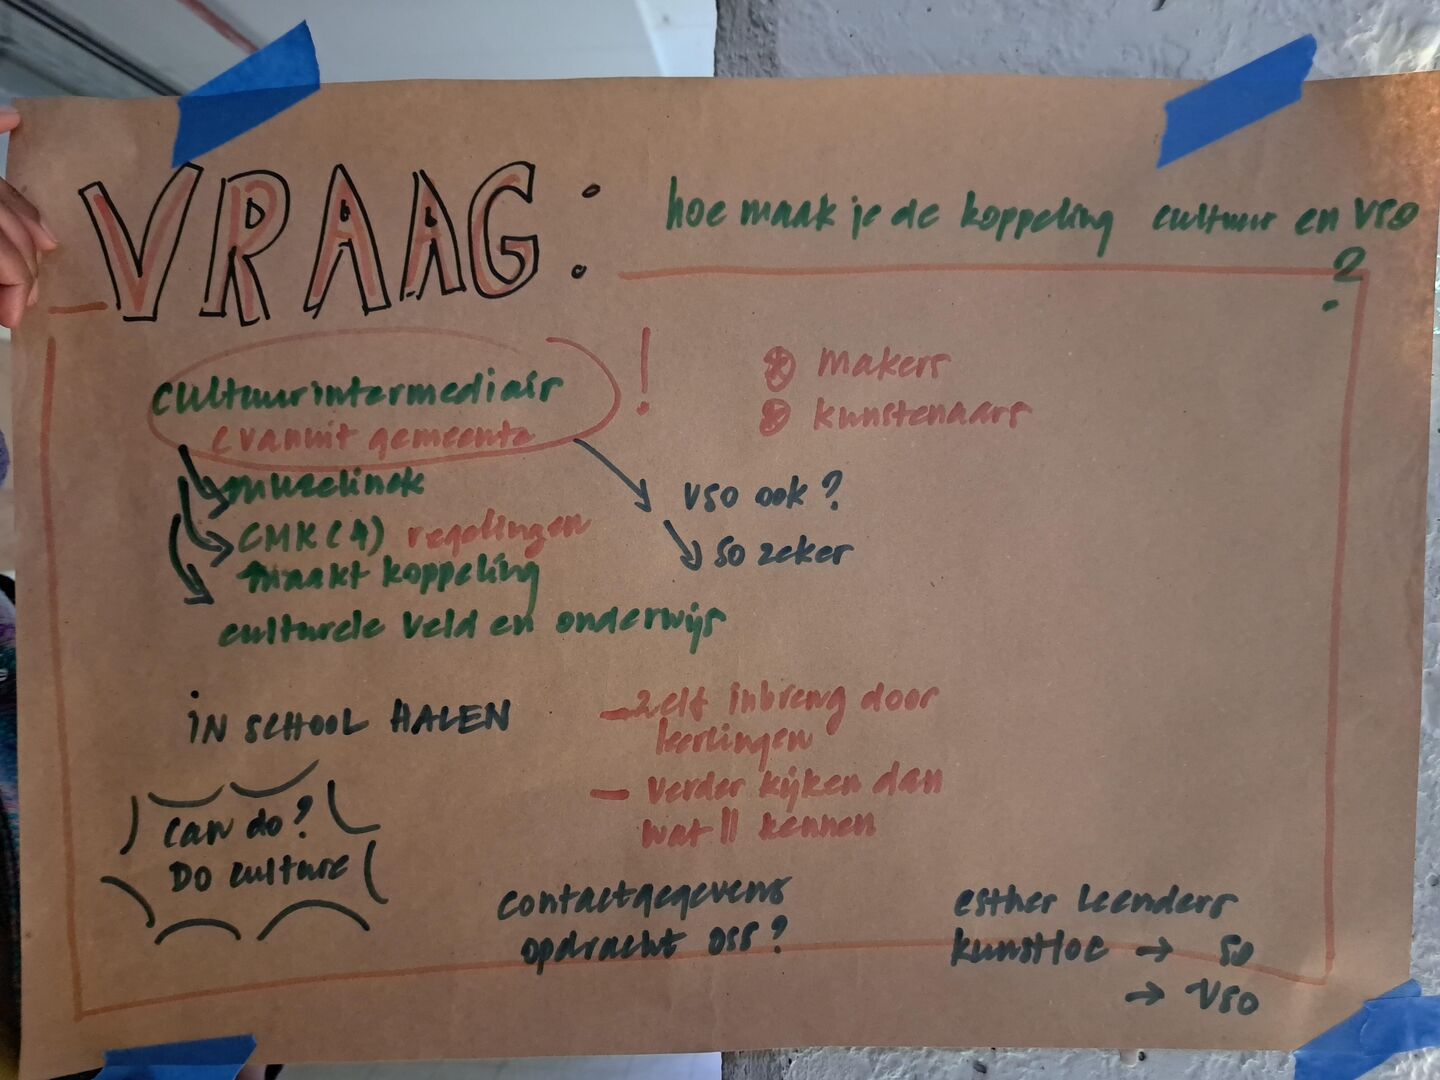 VRAAG:
hoe maak je de koppeling cultuur en VSO
?
cultuurintermediair
(vanuit gemeente
!
muzelinck
CMK (4) regelingen
maakt koppeling
culturele veld en onderwijs
⊗ makers
⊗ kunstenaars
VSO ook?
SO zeker
iN SCHOOL HALEN
- zelf inbreng door
leerlingen
- verder kijken dan
wat ll kennen
can do?
DO culture
contactgegevens
opdracht oss?
esther Leenders
kunstloc → SO
→ VSO